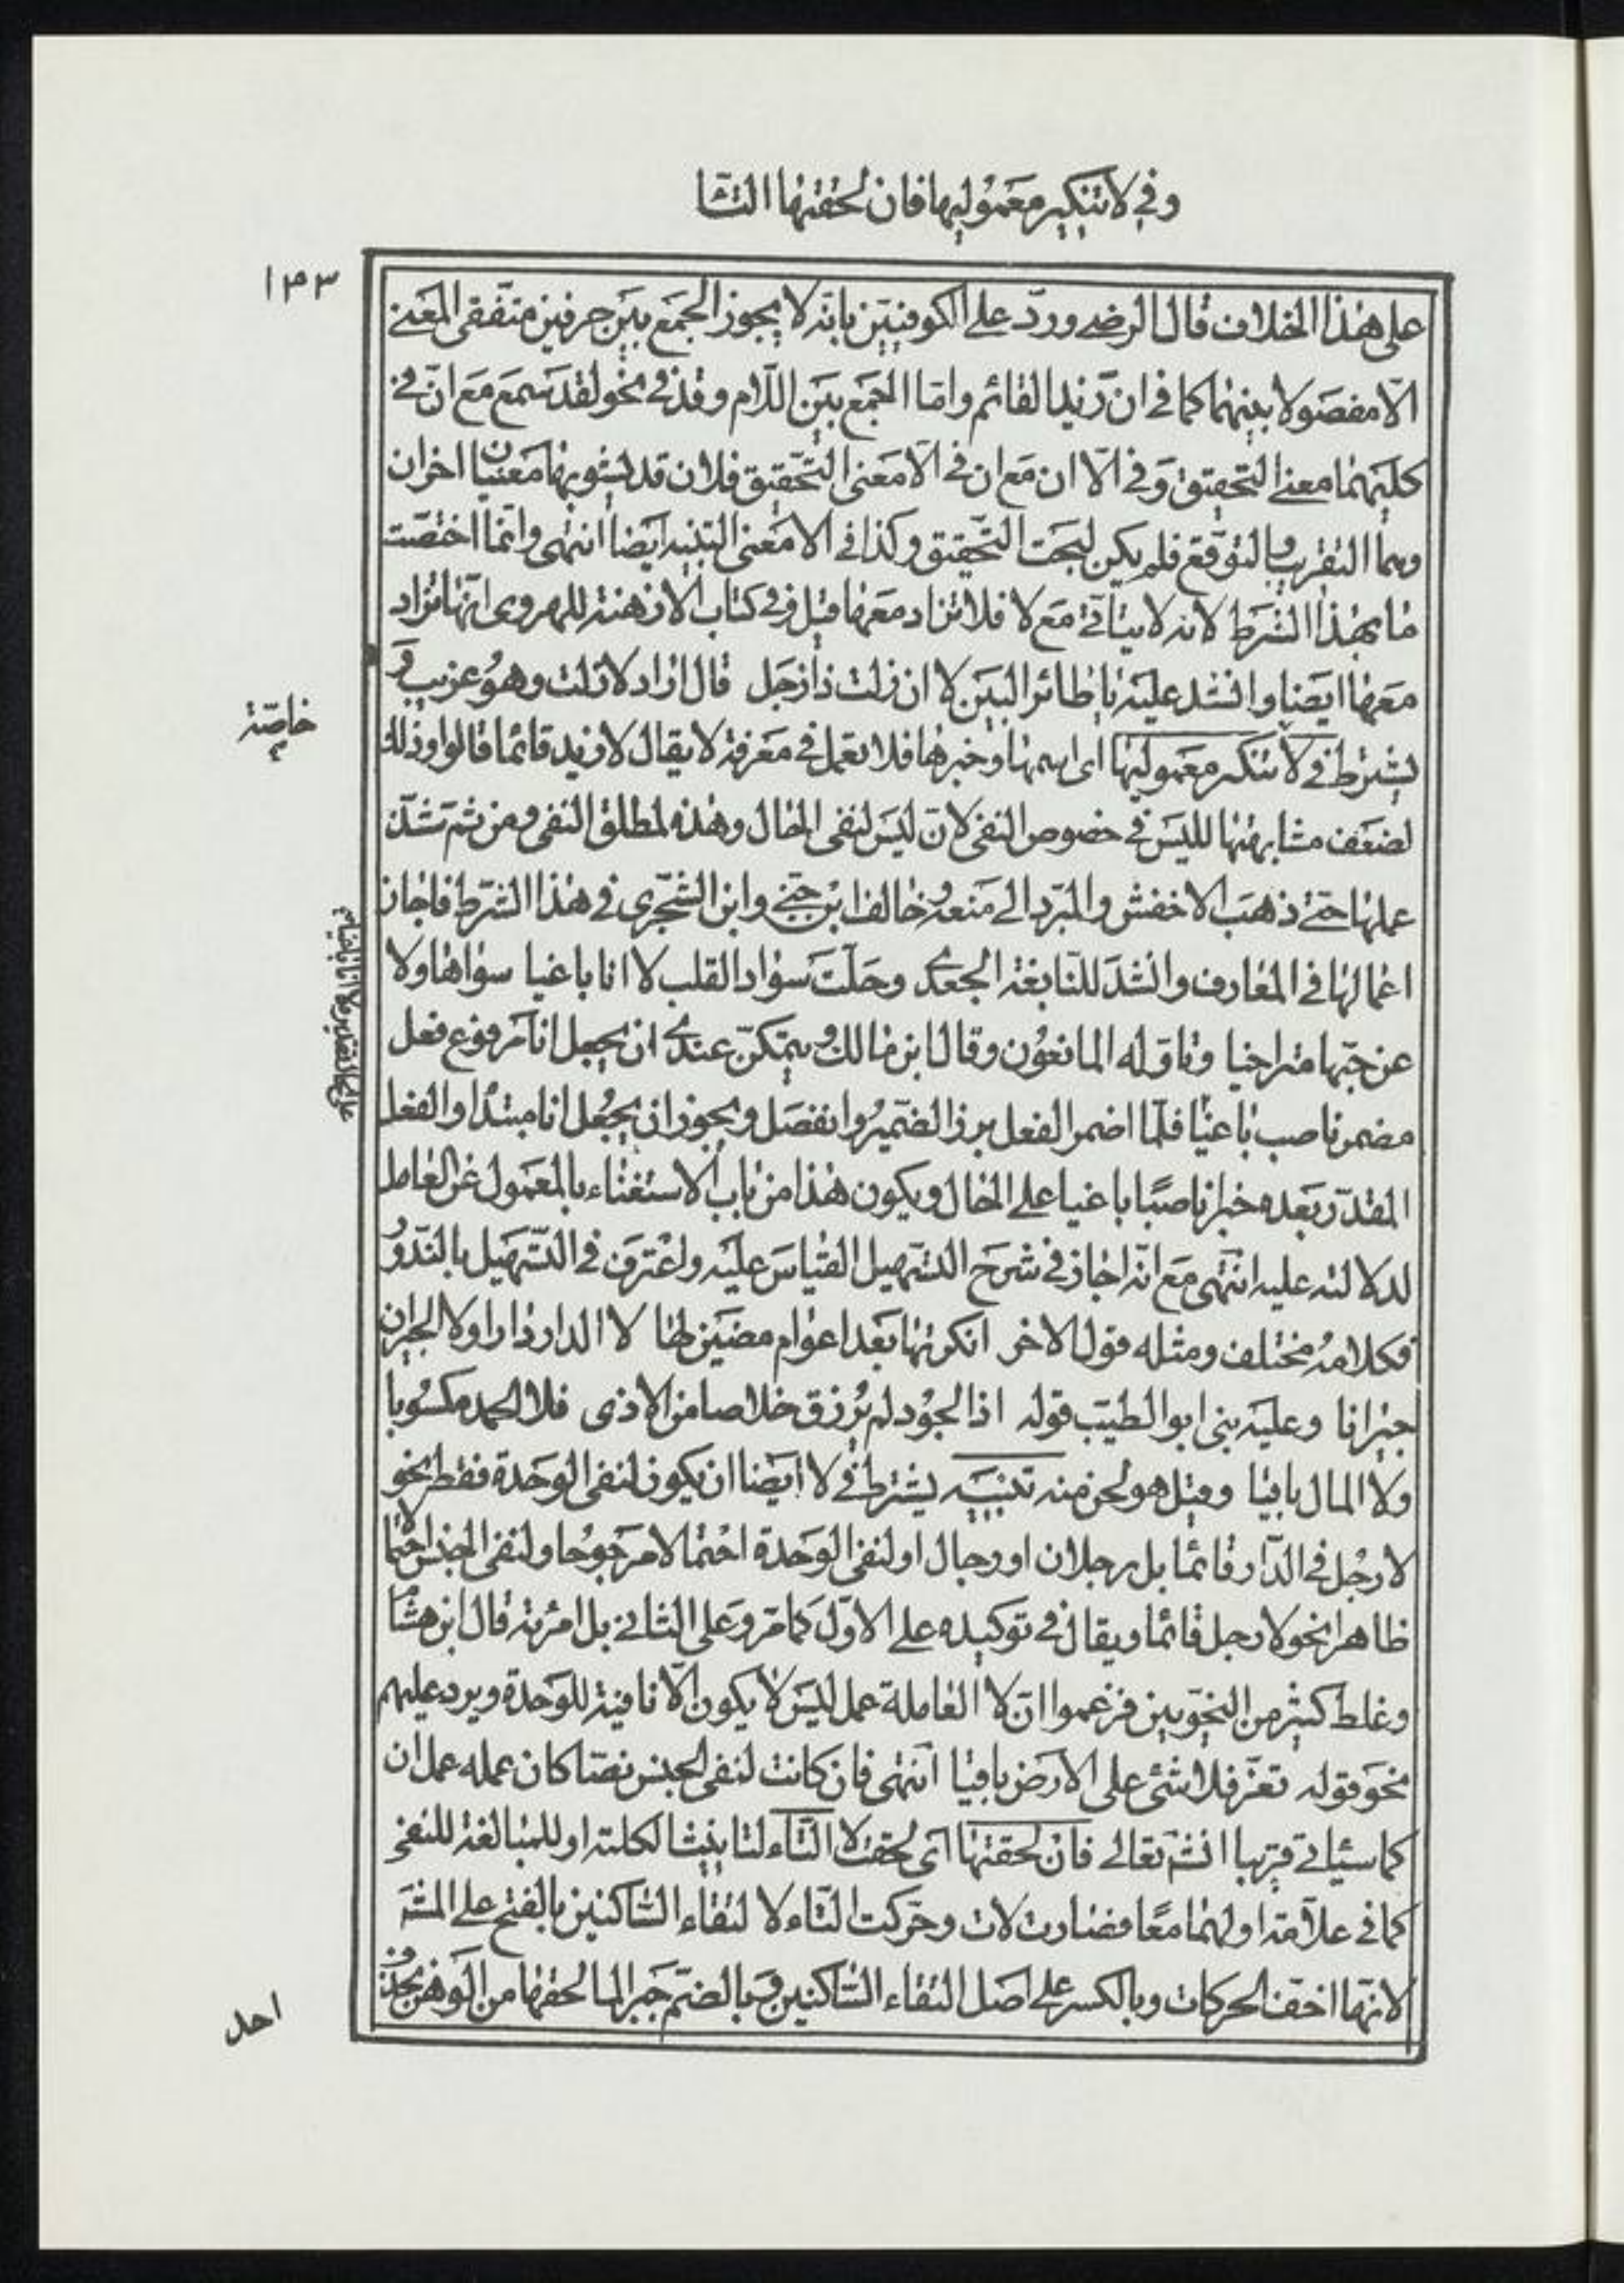 وفي لا تنكير معموليها فان لحقتها التا
١٣٣
على هذا الخلاف قال الرضي وردّ على الكوفيين بانه لا يجوز الجمع بين حرفين متفقي المعنى
الّا مفصولا بينهما كما في ان زيدا لقائم وامّا الجمع بين اللام وقد في نحو لقد سمع مع انّ في
كليهما معنى التحقيق وفي الا ان مع ان في الا معنى التحقيق فلان قد يشوبها معنيان اخران
وهما التقريب والتوقع فلم يكن لبحت التحقيق وكذا في الا معنى التنبيه ايضا انتهى وانما اختصت
ما بهذا الشرط لانه لا يتأتى مع لا فلا تزاد معها قيل وفي كتاب الازهية للهروي انها تزاد
معها ايضا وانشد عليه يا طائر البين لا ان زلت ذا زجل قال اراد لا زلت وهو غريب و
يشترط في لا تنكير معموليها اي اسمها وخبرها فلا تعمل في معرفة لا يقال لا زيد قائما قالوا وذلك
خاصّة
لضعف مشابهتها لليس في خصوص النفي لانّ ليس لنفي الحال وهذه لمطلق النفي ومن ثم شذّ
عملها حتى ذهب الاخفش والمبرّد الى منعه وخالف ابن جني وابن الشجري في هذا الشرط فاجاز
اعمالها في المعارف وانشد للنابغة الجعدي وحلّت سواد القلب لا انا باغيا سواها ولا
عن حبّها متراخيا وتاوّله المانعون وقال ابن مالك ويمكن عندي ان يجعل انا مرفوع فعل
مضمر ناصب باغيا فلمّا اضمر الفعل برز الضمير وانفصل ويجوز ان يجعل انا مبتدا والفعل
المقدّر بعده خبرا ناصبًا باغيا على الحال ويكون هذا من باب الاستغناء بالمعمول عن العامل
لدلالته عليه انتهى مع انه اجاز في شرح التسهيل القياس عليه واعترف في التسهيل بالندور
فكلامه مختلف ومثله قول الاخر انكرتها بعد اعوام مضين لها لا الدار دارا ولا الجيران
جيرانا وعليه بنى ابو الطيب قوله اذا الجود لم يرزق خلاصا من الاذى فلا الحمد مكسوبا
ولا المال باقيا وقيل هو لحن منه تنبيه يشترط في لا ايضا ان يكون لنفي الوحدة فقط نحو
لا رجل في الدار قائما بل رجلان او رجال او لنفي الوحدة احتمالا مرجوحا ولنفي الجنس احتمالا
ظاهرا نحو لا رجل قائما ويقال في توكيده على الاول كما مرّ وعلى الثاني بل امرئة قال ابن هشام
وغلط كثير من النحويين فزعموا انّ لا العاملة عمل ليس لا يكون الّا نافية للوحدة ويرد عليهم
نحو قوله تعزّ فلا شئ على الارض باقيا انتهى فان كانت لنفي الجنس نصّا كان عمله عمل ان
كما سيأتي قريبا انشٓ تعالى فان لحقتها اي لحقت لا التّاء لتانيث الكلمة او للمبالغة للنفي
كما في علامة او لهما معًا فصارت لات وحرّكت التاء لا لتقاء الساكنين بالفتح على المش
لانها اخفّ الحركات وبالكسر على اصل التقاء الساكنين وبالضمّ جبرا لما لحقها من الوهن بحذف
احد